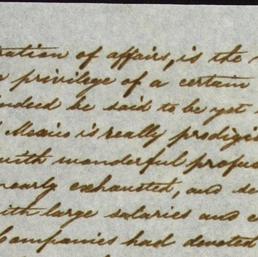 ration of affairs, is the
privilege of a certain
indeed be said to be yet
Mexico is really prodigi
with wonderful profus
nearly exhausted, and se
with large salaries and e
Companies had devoted